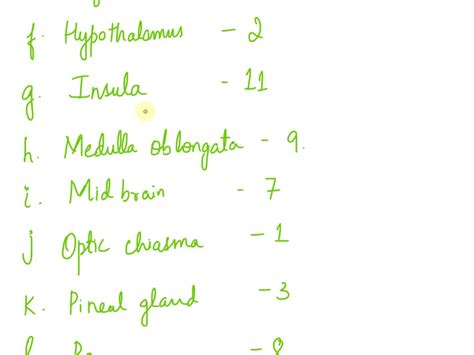 f. Hypothalamus - 2
g. Insula - 11
h. Medulla oblongata - 9.
i. Mid brain - 7
j Optic chiasma - 1
k. Pineal gland - 3
- 8